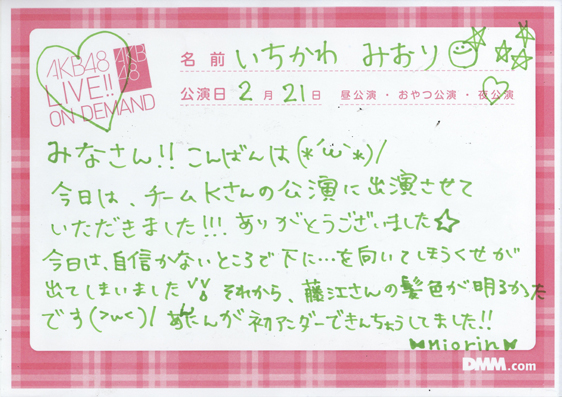 AKB48
LIVE!!
ON DEMAND
AKB
48
名前 いちかわ みおり
公演日 2月21日 昼公演・おやつ公演・夜公演
みなさん!! こんばんは(*'ω`*)/
今日は、チームKさんの公演に出演させて
いただきました!!! ありがとうございました☆
今日は、自信がないところで下に…を向いてしまうくせが
出てしまいました それから、藤江さんの髪色が明るかった
です(>ω<)/ が初アンダーできんちょうしてました!!
Miorin
DMM.com